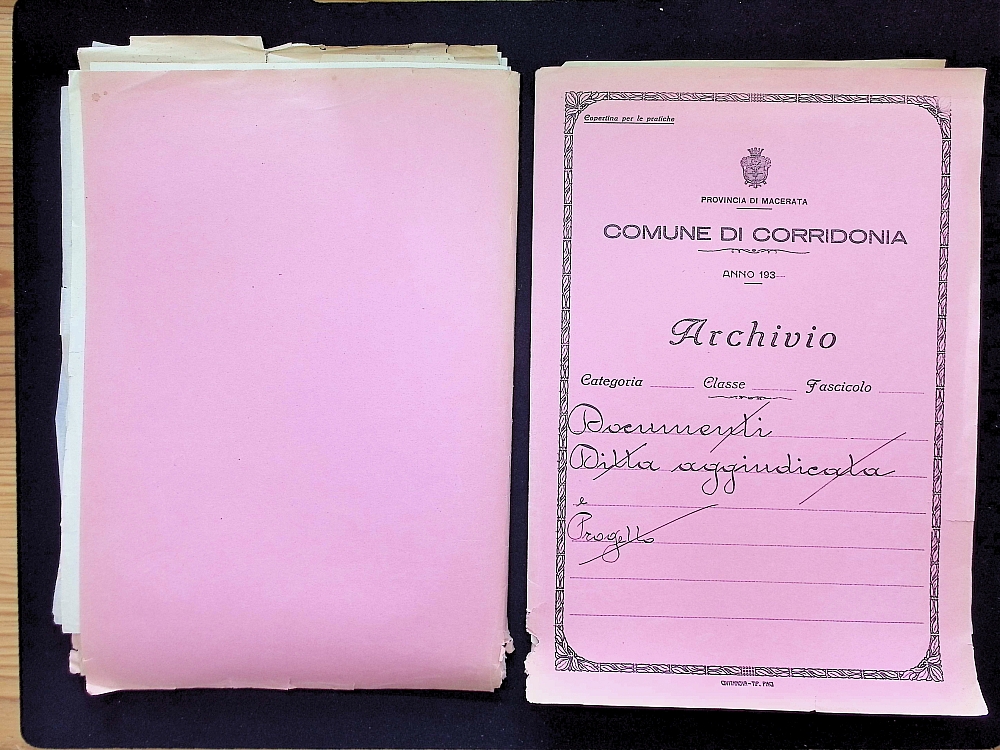 Copertina per le pratiche
PROVINCIA DI MACERATA
COMUNE DI CORRIDONIA
ANNO 193
Archivio
Categoria Classe Fascicolo
Documenti
Ditta aggiudicata
e
Progetto